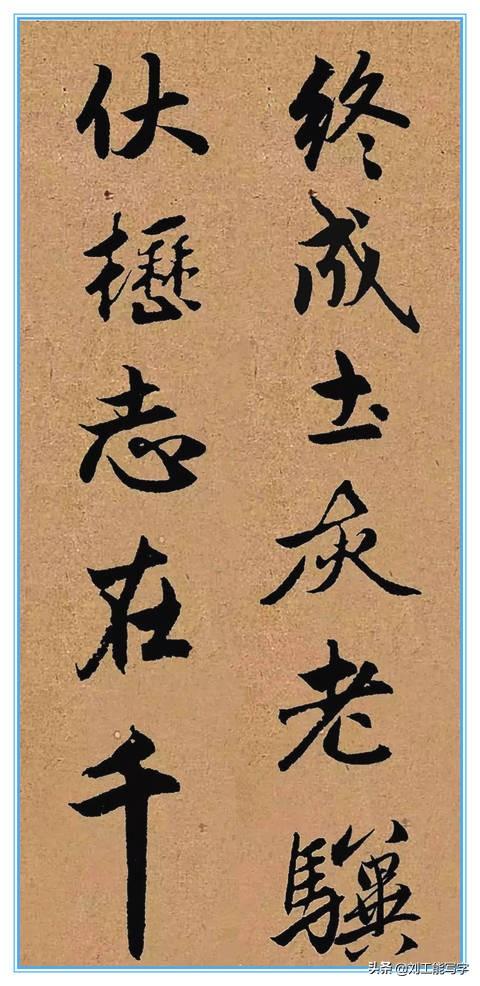 终成土灰老骥
伏枥志在千
头条 @刘工能写字